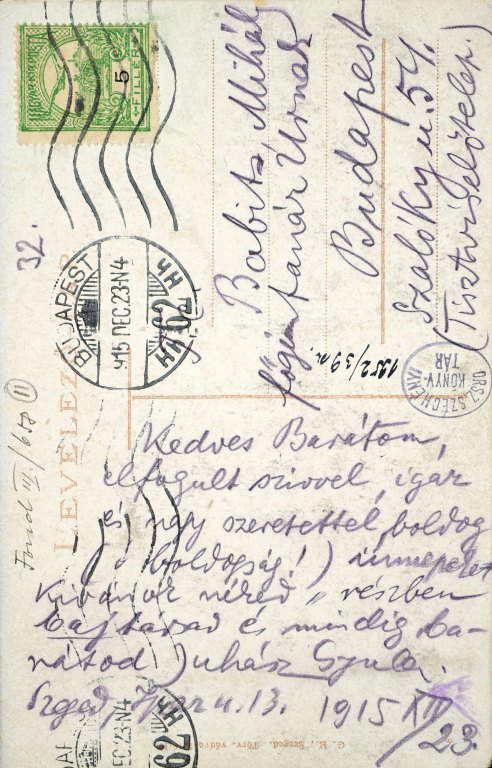 MAGYAR KIR. POSTA
5
FILLÉR
32.
BUDAPEST
915 DEC.23-N4
62
LEVELEZŐ
Babits Mihály
főgimn. tanár Úrnak
Budapest
Szalóky u. 54.
(Tisztviselőtelep.)
1952/39 n.
ORSZ. SZÉCHÉNYI
KÖNYV
TÁR
Fond III./658 (11)
Kedves Barátom,
elfogult szivvel, igaz
és nagy szeretettel, boldog
(boldogság!) ünnepeket
kivánok néked, részben
bajtársad és mindig ba-
rátod Juhász Gyula.
Szeged, u. 13. 1915 XII
23.
G. H., Szeged. Törv. védve.
DEC.23-N4
62